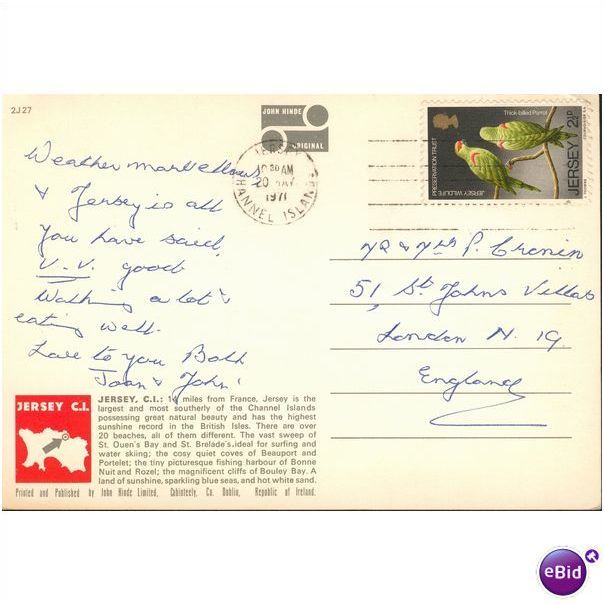 2J27
JOHN HINDE
ORIGINAL
JERSEY
10 30 AM
20 MAY
1971
CHANNEL ISLANDS
Thick-billed Parrot
PRESERVATION TRUST
JERSEY WILDLIFE
JERSEY 2½p
Weather marvellous
& Jersey is all
you have said,
V.V. good
Walking a lot &
eating well.
Love to you Both
Joan & John
Mr & Mrs P. Cronin
51, St Johns Villas
London N. 19.
England
JERSEY C.I.
JERSEY, C.I.: 14 miles from France, Jersey is the
largest and most southerly of the Channel Islands
possessing great natural beauty and has the highest
sunshine record in the British Isles. There are over
20 beaches, all of them different. The vast sweep of
St. Ouen's Bay and St. Brelade's, ideal for surfing and
water skiing; the cosy quiet coves of Beauport and
Portelet; the tiny picturesque fishing harbour of Bonne
Nuit and Rozel; the magnificent cliffs of Bouley Bay. A
land of sunshine, sparkling blue seas, and hot white sand.
Printed and Published by John Hinde Limited, Cabinteely, Co. Dublin, Republic of Ireland.
eBid